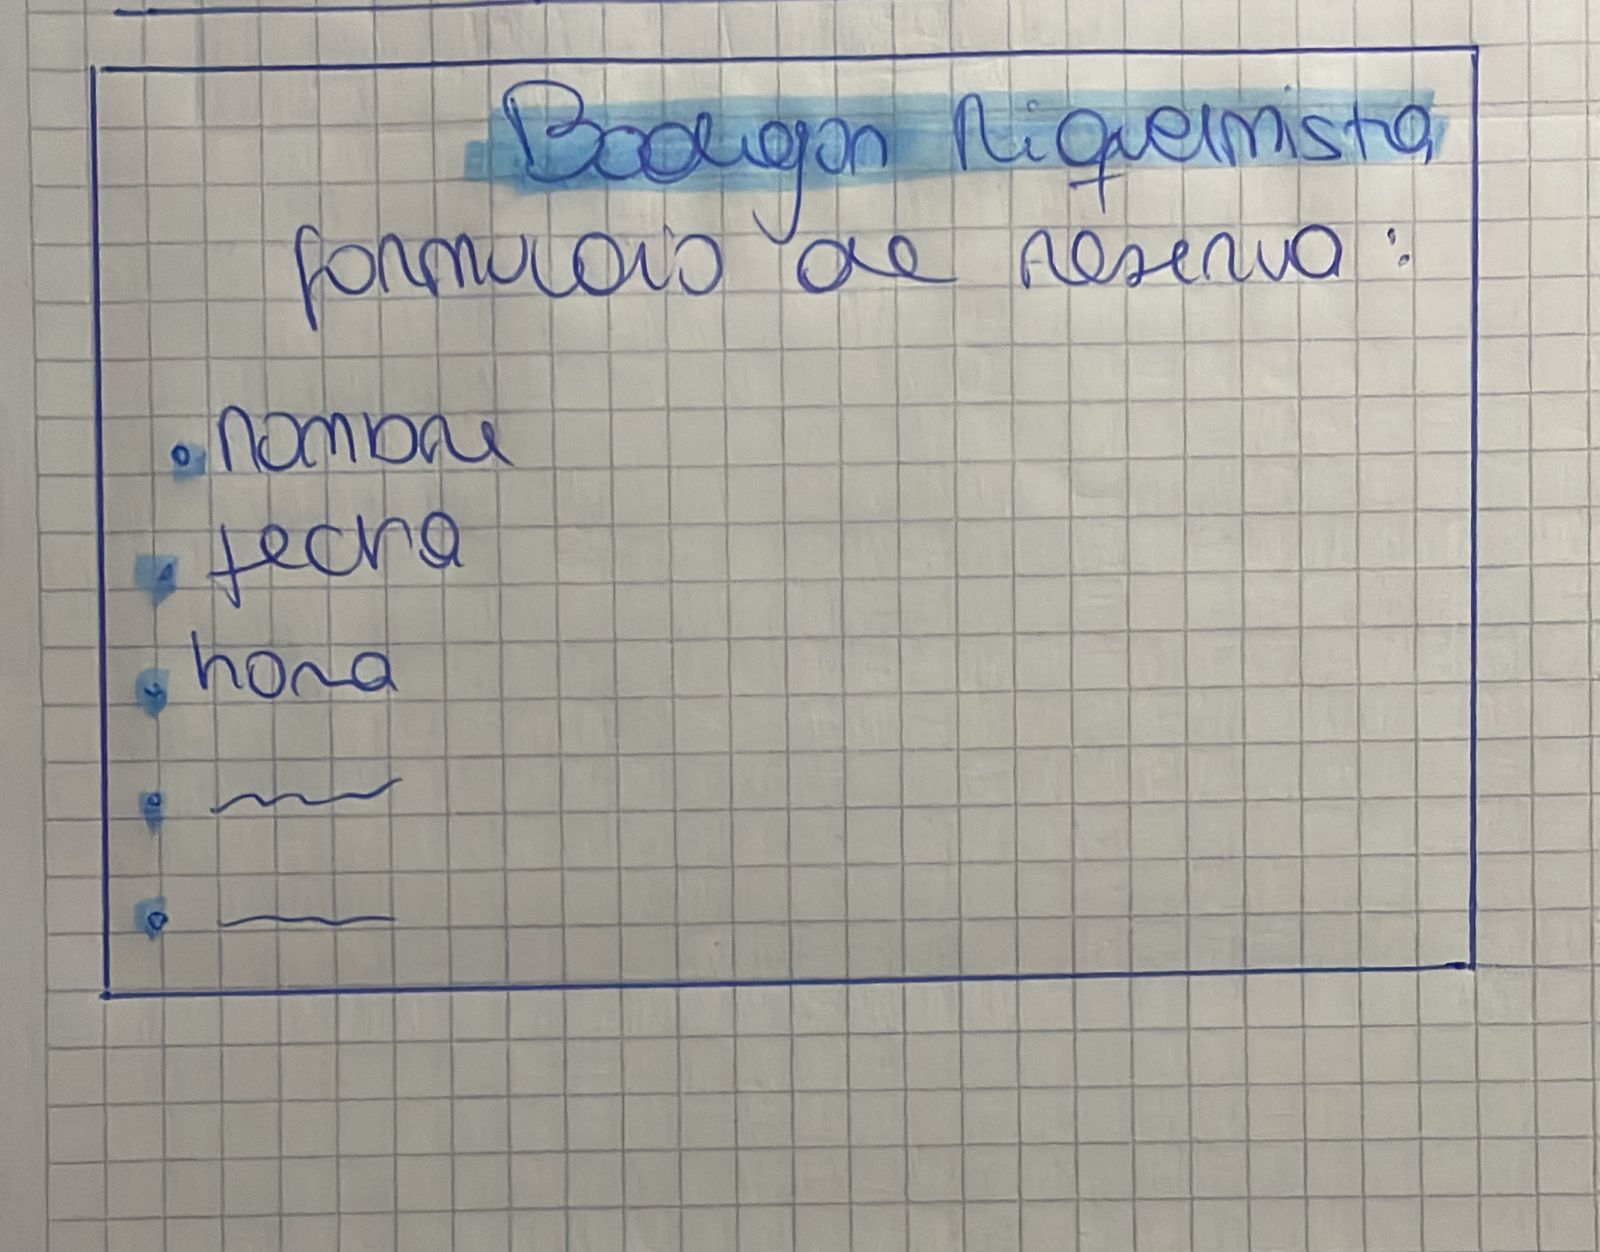 Bodegon Riquelmista
formulario de reserva:
nombre
fecha
hora